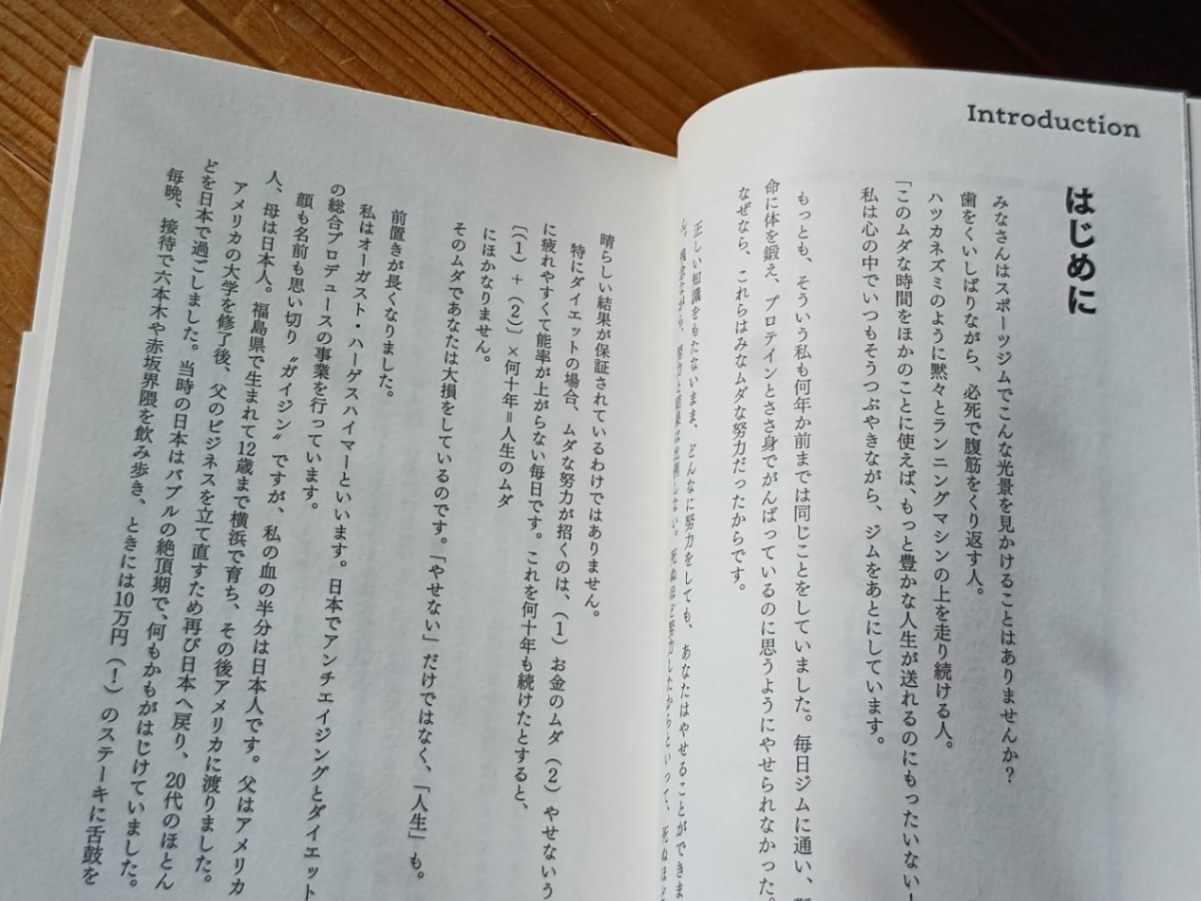 Introduction
はじめに
みなさんはスポーツジムでこんな光景を見かけることはありませんか？
歯をくいしばりながら、必死で腹筋をくり返す人。
ハツカネズミのように黙々とランニングマシンの上を走り続ける人。
「このムダな時間をほかのことに使えば、もっと豊かな人生が送れるのにもったいない！
私は心の中でいつもそうつぶやきながら、ジムをあとにしています。
もっとも、そういう私も何年か前までは同じことをしていました。毎日ジムに通い、
命に体を鍛え、プロテインとささ身でがんばっているのに思うようにやせられなかった。
なぜなら、これらはみなムダな努力だったからです。
正しい知識をもたないまま、どんなに努力をしても、あなたはやせることができま
ん。残念ながら、努力と結果は比例しない。死ぬほど努力したからといって、死ぬほど
晴らしい結果が保証されているわけではありません。
特にダイエットの場合、ムダな努力が招くのは、（1）お金のムダ（2）やせないう
に疲れやすくて能率が上がらない毎日です。これを何十年も続けたとすると、
〔（1）＋（2）〕×何十年＝人生のムダ
にほかなりません。
そのムダであなたは大損をしているのです。「やせない」だけではなく、「人生」も。
前置きが長くなりました。
私はオーガスト・ハーゲスハイマーといいます。日本でアンチエイジングとダイエット
の総合プロデュースの事業を行っています。
顔も名前も思い切り〝ガイジン〟ですが、私の血の半分は日本人です。父はアメリカ
人、母は日本人。福島県で生まれて12歳まで横浜で育ち、その後アメリカに渡りました。
アメリカの大学を修了後、父のビジネスを立て直すため再び日本へ戻り、20代のほとん
どを日本で過ごしました。当時の日本はバブルの絶頂期で、何もかもがはじけていました。
毎晩、接待で六本木や赤坂界隈を飲み歩き、ときには10万円（！）のステーキに舌鼓を